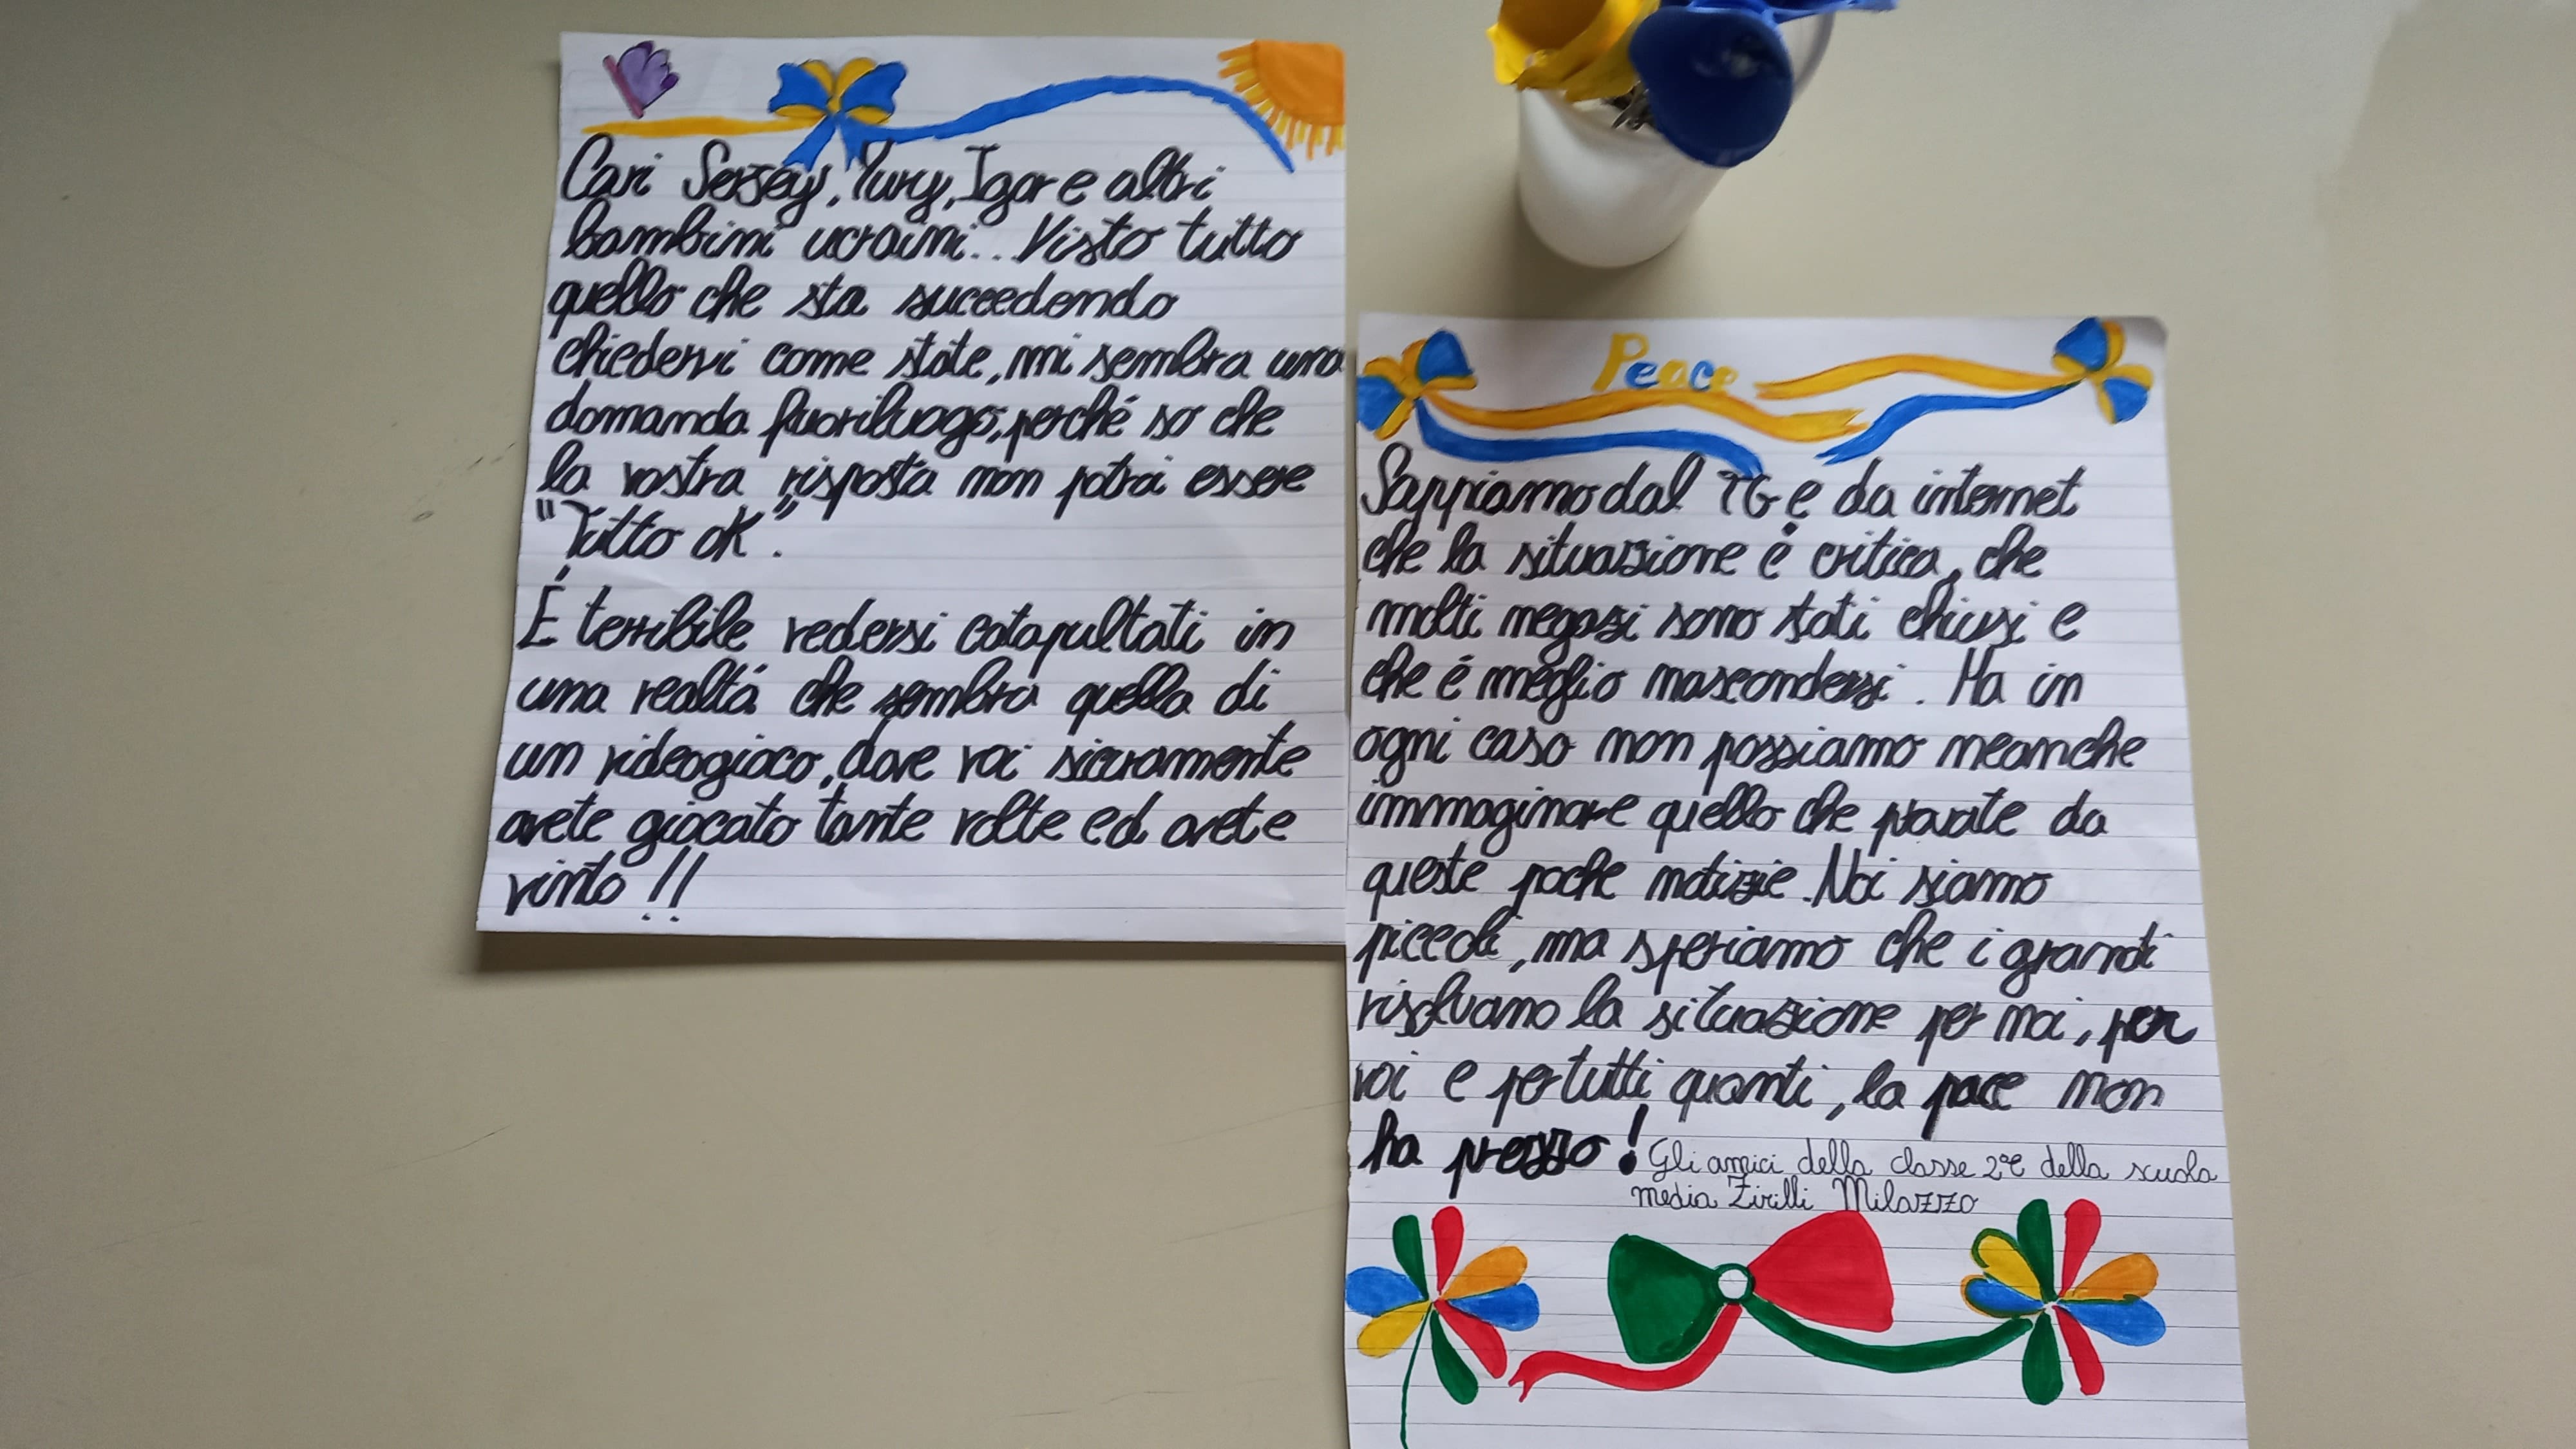 Cari Sergey, Yury, Igor e altri
bambini ucraini... Visto tutto
quello che sta succedendo
chiedervi come state, mi sembra una
domanda fuoriluogo, perché so che
la vostra risposta non potrà essere
"Tutto ok".
É terribile vedersi catapultati in
una realtá che sembra quella di
un videogioco, dove voi sicuramente
avete giocato tante volte ed avete
vinto!!
Peace
Sappiamo dal TG e da internet
che la situazione é critica, che
molti negozi sono stati chiusi e
che é meglio nascondersi. Ma in
ogni caso non possiamo neanche
immaginare quello che provate da
queste poche notizie. Noi siamo
piccoli, ma speriamo che i grandi
risolvano la situazione per noi, per
voi e per tutti quanti, la pace non
ha prezzo! Gli amici della classe 2ªE della scuola
media Zirilli Milazzo